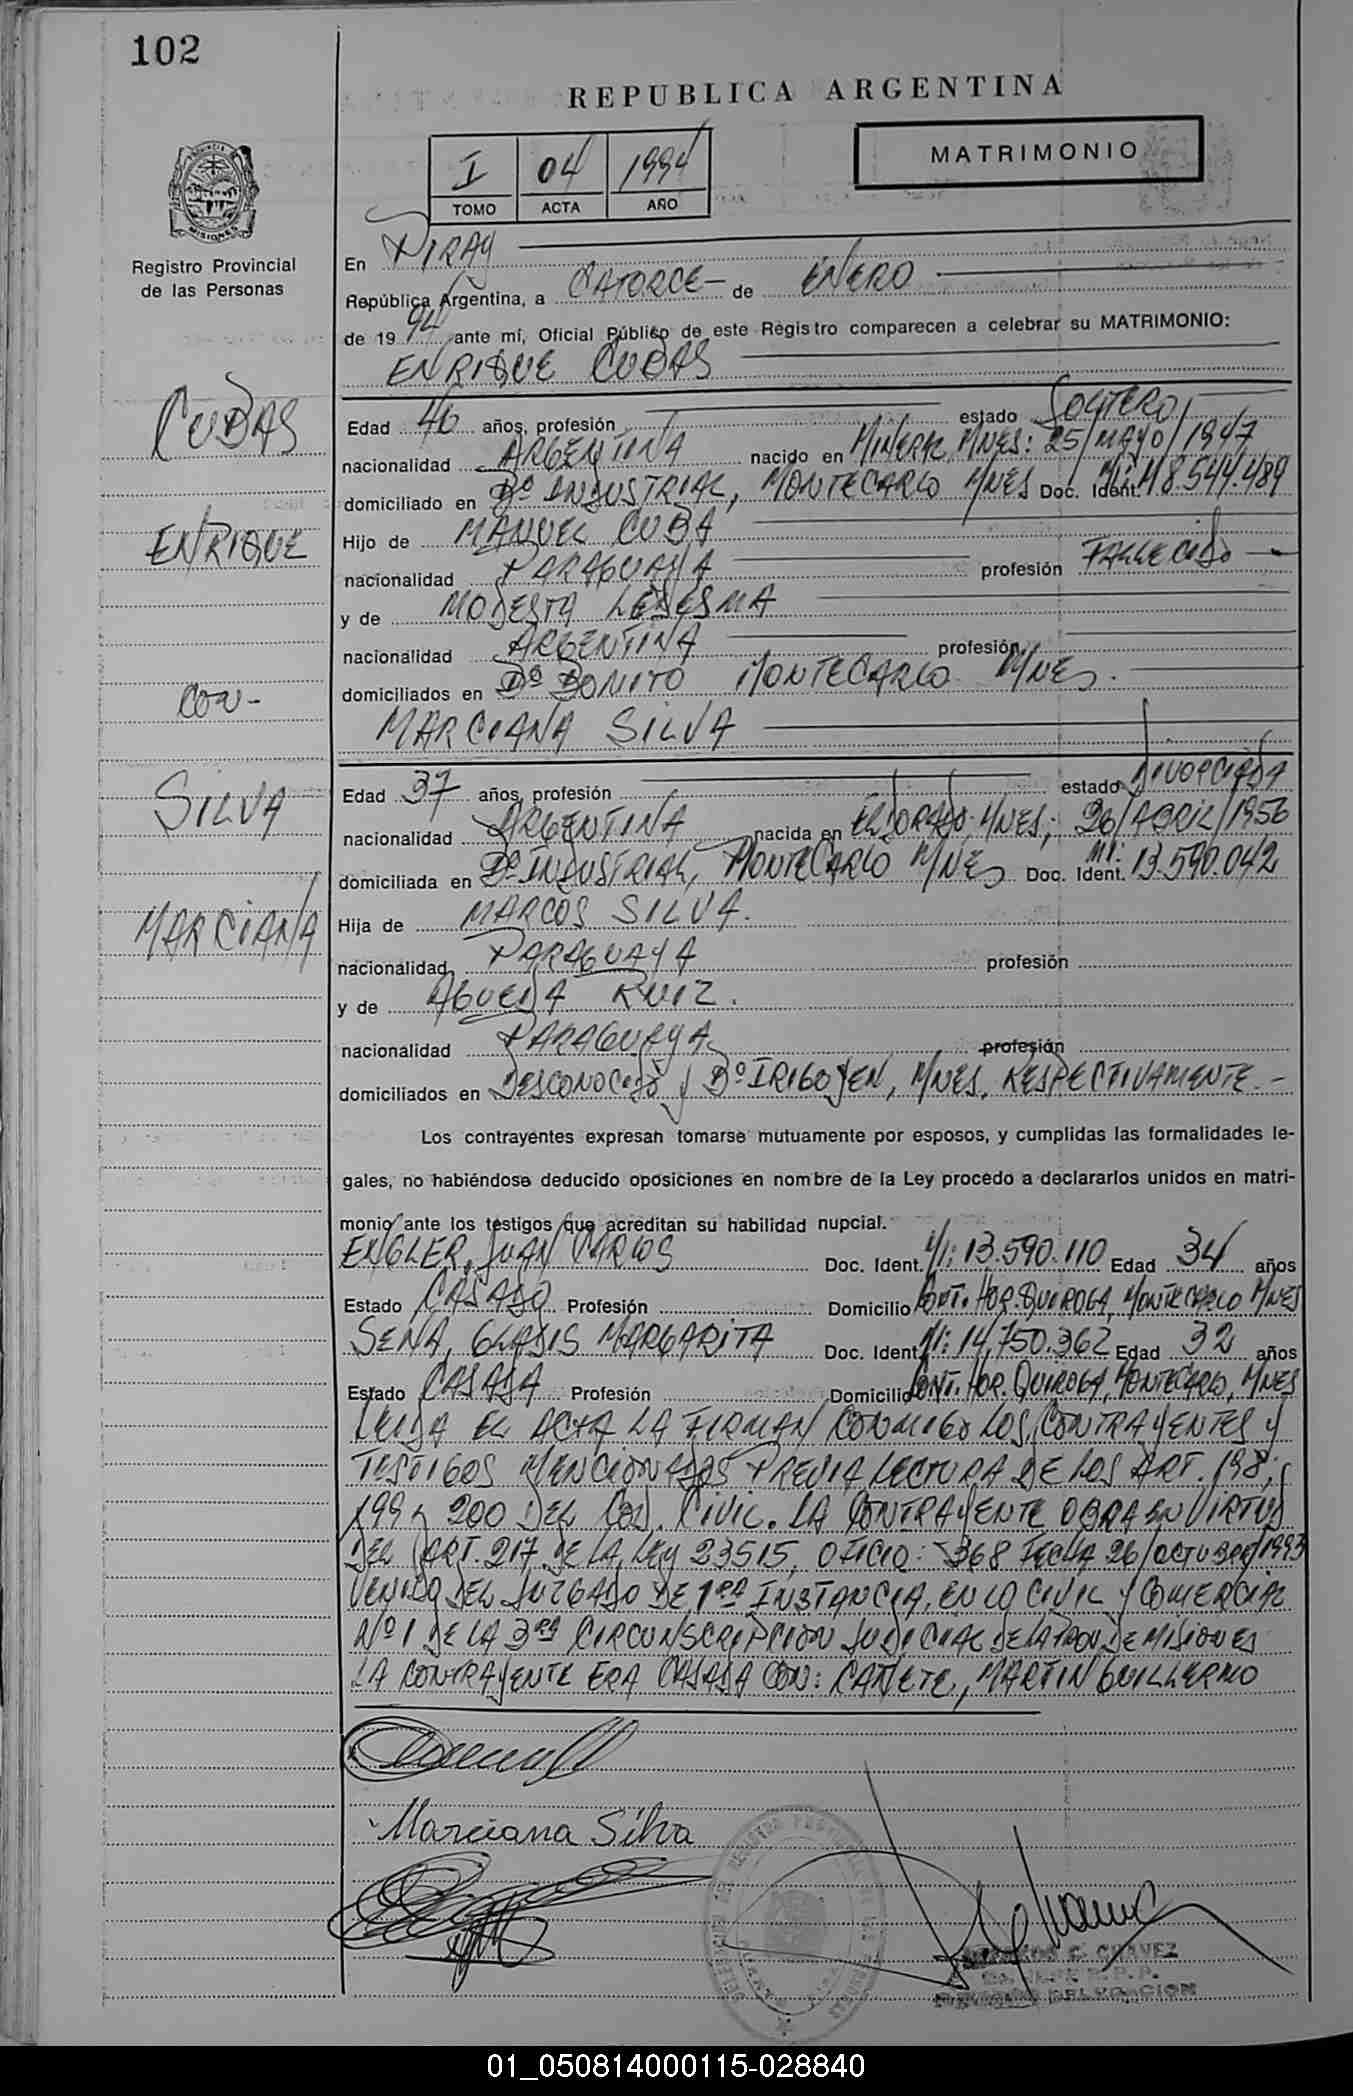 102
REPUBLICA ARGENTINA
MATRIMONIO
I 04 1994
TOMO ACTA AÑO
MISIONES
Registro Provincial
de las Personas
En PIRAY
República Argentina, a CATORCE - de ENERO
de 19 94 ante mí, Oficial Público de este Registro comparecen a celebrar su MATRIMONIO:
ENRIQUE CUBAS
CUBAS
ENRIQUE
CON -
SILVA
MARCIANA
Edad 46 años, profesión estado SOLTERO
nacionalidad ARGENTINA nacido en MINERAL MNES: 25/MAYO/1947
domiciliado en Bº INDUSTRIAL, MONTECARLO MNES Doc. Ident. MI: 8.544.489
Hijo de MANUEL CUBA
nacionalidad PARAGUAYA profesión FALLECIDO -
y de MODESTA LEDESMA
nacionalidad ARGENTINA profesión
domiciliados en Bº BONITO MONTECARLO MNES.
MARCIANA SILVA
Edad 37 años, profesión estado DIVORCIADA
nacionalidad ARGENTINA nacida en ELDORADO MNES; 26/ABRIL/1956
domiciliada en Bº INDUSTRIAL, MONTECARLO MNES Doc. Ident. MI: 13.590.042
Hija de MARCOS SILVA.
nacionalidad PARAGUAYA profesión
y de AGUEDA RUIZ.
nacionalidad PARAGUAYA profesión
domiciliados en DESCONOCIDO y Bº IRIGOYEN, MNES, RESPECTIVAMENTE. -
Los contrayentes expresan tomarse mutuamente por esposos, y cumplidas las formalidades le-
gales, no habiéndose deducido oposiciones en nombre de la Ley procedo a declararlos unidos en matri-
monio ante los testigos que acreditan su habilidad nupcial.
ENGLER, JUAN CARLOS Doc. Ident. MI: 13.590.110 Edad 34 años
Estado CASADO Profesión Domicilio PONT. HOR. QUIROGA, MONTECARLO MNES
SENA, GLADIS MARGARITA Doc. Ident. MI: 14.750.362 Edad 32 años
Estado CASADA Profesión Domicilio PONT. HOR. QUIROGA, MONTECARLO, MNES
LEIDA EL ACTA LA FIRMAN CONMIGO LOS CONTRAYENTES Y
TESTIGOS MENCIONADOS PREVIA LECTURA DE LOS ART. 198;
199 y 200 DEL COD. CIVIL. LA CONTRAYENTE OBRA EN VIRTUD
DEL ART. 217 DE LA LEY 23515, OFICIO: 368 FECHA 26/OCTUBRE/1993
VENIDO DEL JUZGADO DE 1RA INSTANCIA, EN LO CIVIL Y COMERCIAL
Nº 1 DE LA 3RA CIRCUNSCRIPCION JUDICIAL DE LA PROV DE MISIONES
LA CONTRAYENTE ERA CASADA CON: CAÑETE, MARTIN GUILLERMO
Marciana Silva
C. CHAVEZ
DELEGACION
01_050814000115-028840